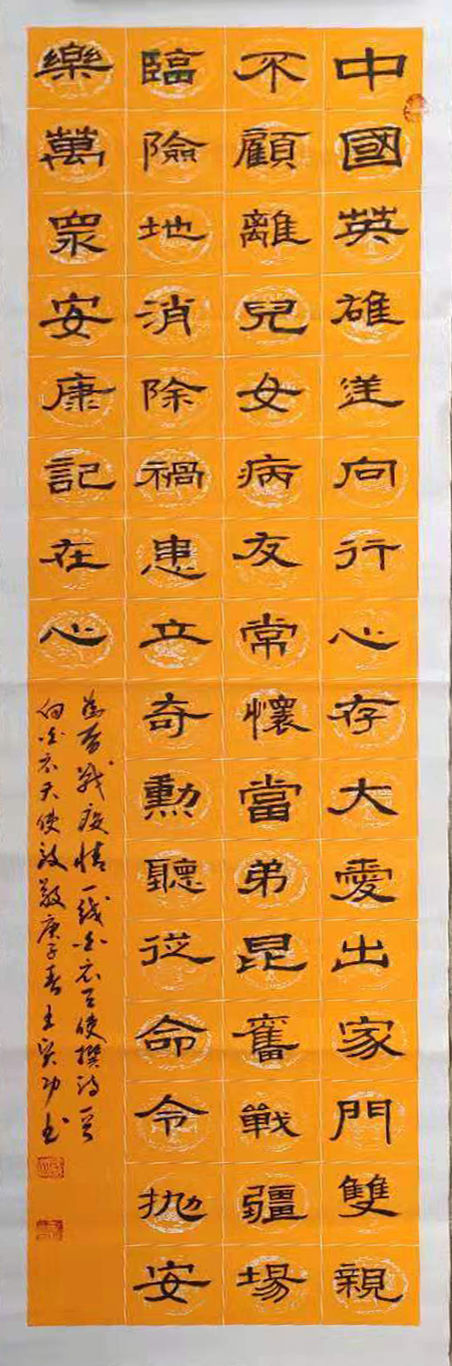 中國英雄逆向行心存大愛出家門雙親
不顧離兒女病友常懷當弟昆奮戰疆場
臨險地消除禍患立奇勳聽從命令抛安
樂萬眾安康記在心
為奋战疫情一线白衣天使撰诗一首
向白衣天使致敬庚子春王功书